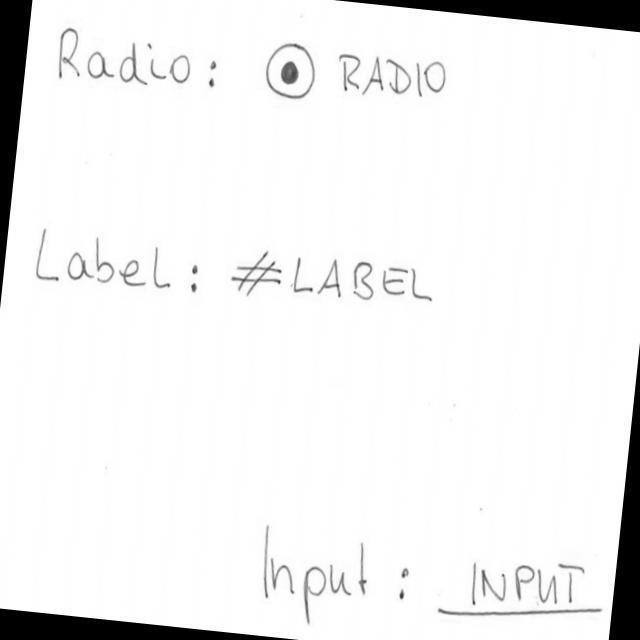 Radio: ◉ RADIO
Label: #LABEL
Input: INPUT